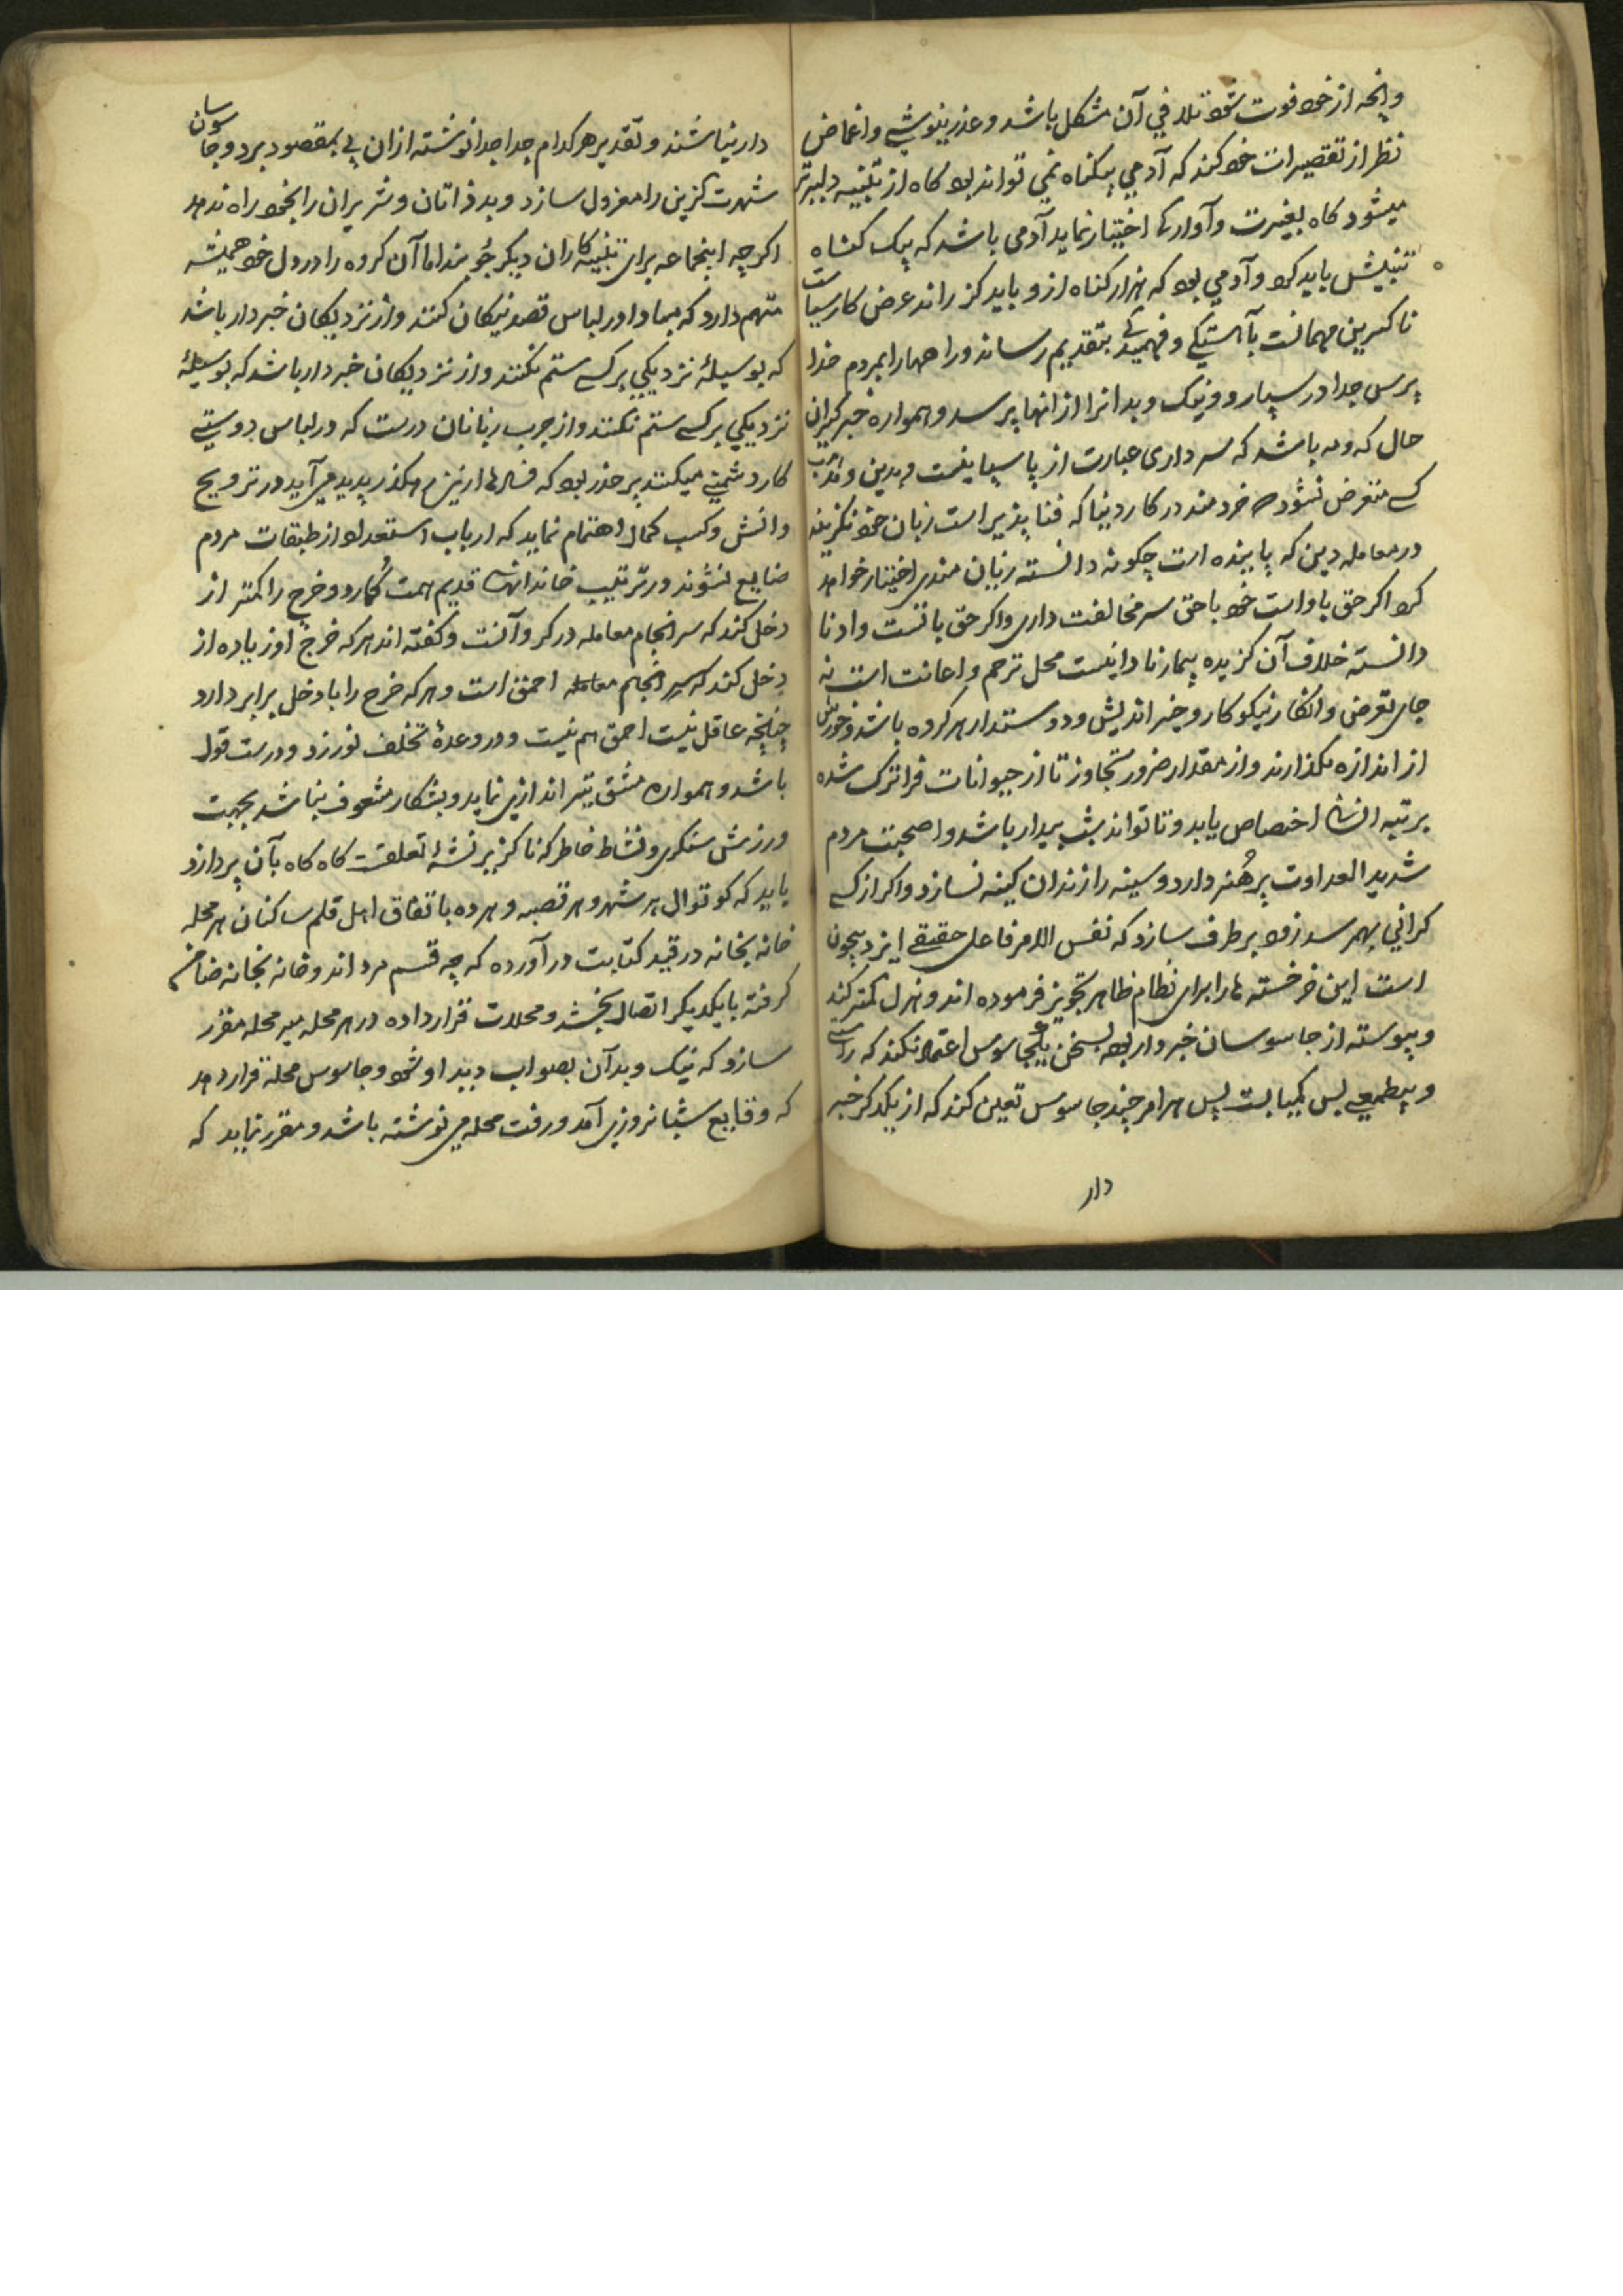 وانچه از خود فوت شود تلافی آن مشکل باشد و عذر بنیوشی و اغماض
نظر از تقصیرات خو کند که آدمی بیکناه نمی تواند بود کاه از تنبیه دلیرتر
میشود کاه بغیرت و آوارکی اختیار نماید آدمی باشد که بیک کناه
تنبیهش باید کرد و آدمی بود که هزار کناه ازو باید کذراند غرض کار سیاست
ناکزیرین مهمانست بآهستکی و فهمیدکی بتقدیم رساند و راهها را بمردم خدا
پرس جدا در سپارد و نیک و بد انرا از انها پرسد و همواره خبرکیران
حال که ومه باشد که سرداری عبارت از پاسبانیست و بدین و مذهب
کسی متعرض نشود که خردمند در کار دنیا که فنا پذیر است زیان خود نکزیند
در معامله دین که پاینده است چکونه دانسته زیان مندی اختیار خواهد
کرد اکر حق با او است خود با حق سر مخالفت داری و اکر حق با تست و او نا
دانسته خلاف آن کزیده بیمار نادانیست محل ترحم و اعانت است نه
جای تعرض و انکار نیکوکار و خیر اندیش و دوستدار هر کروه باشد و خورش
از اندازه نکذارند و از مقدار ضرور تجاوز تا از حیوانات فراترک شده
برتبه انسانی اختصاص یابد و تا تواند بشب بیدار باشد و صحبت مردم
شدید العداوت پرهنر دارد و سینه را زندان کینه نسازد و اکر از کسی
کرانی بهم رسد زود برطرف سازد که نفس الامر فاعل حقیقی ایزد بیچون
است این خرخسته ها را برای نظام ظاهر تجویز فرموده اند و هزل کمتر کند
و پیوسته از جاسوسان خبردار بود بسخن یک جاسوس اعتماد نکند که راستی
و بیطمعی بس کمیابست پس هر امر چند جاسوس تعین کند که از یکدکر خبر
دار
دار نباشند و تقدیر هر کدام جدا جدا نوشته ازان پی بمقصود برد و جاسوسان
شهرت کزین را معزول سازد و بدذاتان و شریران را بخود راه ندهد
اکرچه اینجماعه برای تنبیه کاران دیکر جویند اما آن کروه را در دل خود همیشه
متهم دارد که مبادا در لباس قصد نیکان کنند و از نزدیکان خبردار باشد
که بوسیلهٔ نزدیکی بر کسی ستم نکنند و از نزدیکان خبردار باشد که بوسیلهٔ
نزدیکی بر کسی ستم نکنند و از چرب زبانان درست که در لباس دوستی
کار دشمنی میکنند پر حذر بود که فسادها ازین رهکذر پدید می آید در ترویج
دانش و کسب کمال اهتمام نماید که ارباب استعداد از طبقات مردم
ضایع نشوند در ترتیب خاندانهای قدیم همت کمارد و خرج را کمتر از
دخل کند که سرانجام معامله در کرو آنست و کفته اند هر که خرج او زیاده از
دخل کند که سر انجام معامله احمق است و هر که خرج را با دخل برابر دارد
چنانچه عاقل نیست احمق هم نیست و در وعدهٔ تخلف نورزد و درست قول
باشد و همواره مشق تیر اندازی نماید و بشکار مشعوف نباشد بجهت
ورزش سنکری و نشاط خاطر که ناکزیر نشهٔ تعلقست کاه کاه بآن پردازد
باید که کوتوال هر شهر و هر قصبه و هر ده باتفاق اهل قلم ساکنان هر محله
خانه بخانه در قید کتابت در آورده که چه قسم مردم اند و خانه بخانه ضامن
کرفته بایکدیکر اتصال بخشد و محلات قرار داده در هر محله میر محله مقرر
سازد که نیک و بد آن بصواب دید او شود و جاسوس محله قرار دهد
که وقایع شبانروزی آمد و رفت محله می نوشته باشد و مقرر نماید که